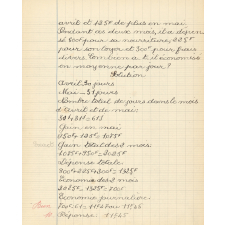 avril et 125f de plus en mai
Pendant ces deux mois, il a dépen
sé 800f pour sa nourriture, 225f
pour son loyer et 300f pour frais
divers. Combien a-t-il économisé
en moyenne par jour?
Solution
Avril 30 jours
Mai = 31 jours
Nombre total de jours dans le mois
d'avril et de mai
30+31=61j
Gain en mai
950f+125f=1075f
Gain total des 2 mois
1075f+950f=2025f
Dépense totale
800f+225f+300f=1325f
Economie des 2 mois
2025f-1325f=700f
Economie journalière
700f:61=11f47 ou 11f45
Réponse: 11f45